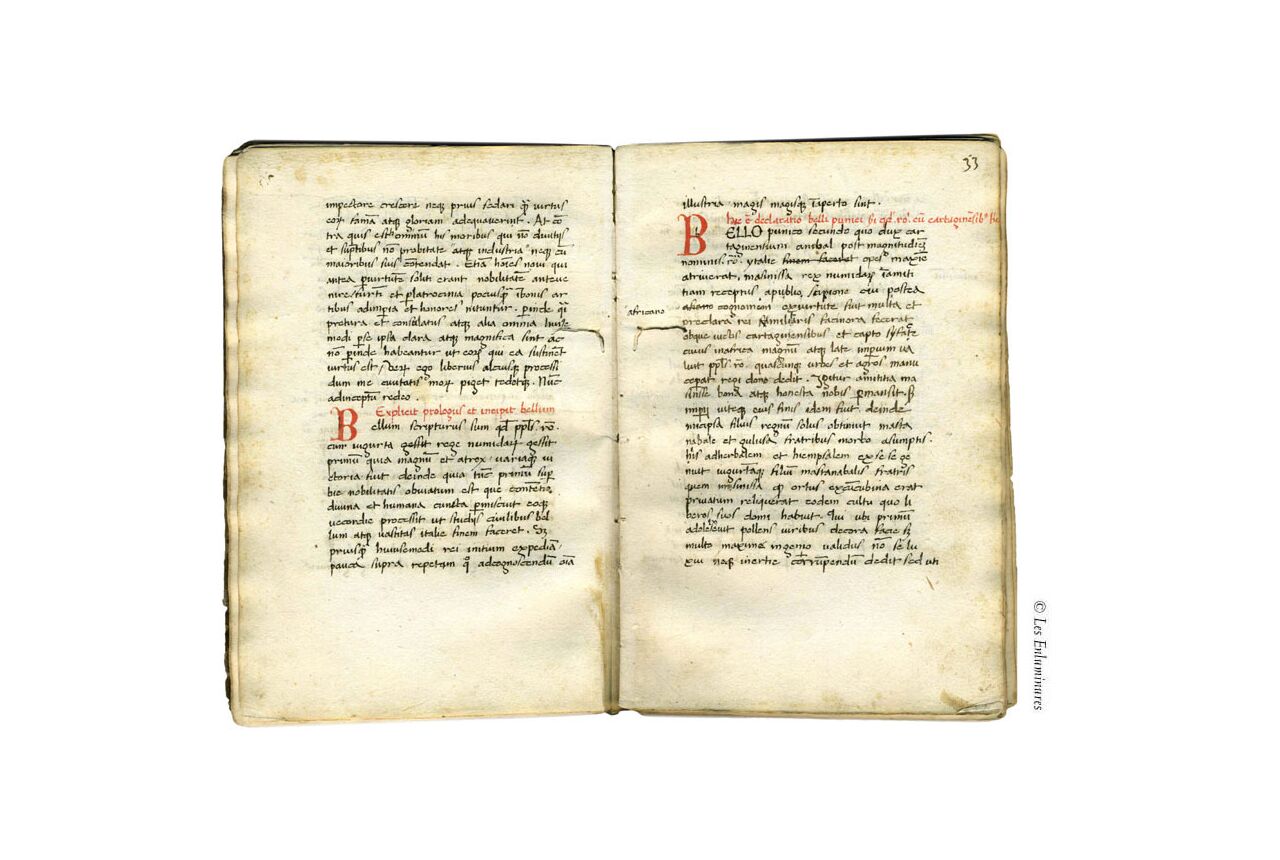 impectore crescere neq; prius sedari q̃ virtus
eoꝝ famã atq; gloriam adequaverint. At cõ
tra quis est ominũ his moribus qui nõ divitijs
et sũptibus nõ probitate atq; industria neq; cũ
maioribus suis cõtendat. Etiã hoĩes novi qui
antea p virtutẽ soliti erant nobilitatẽ anteve
nire furti et p latrocinia pociusq̃ ibonis ar
tibus adimpia et honores nituntur. pinde q̃si
pretura et consulatus atq; alia omnia huisc
modi p se ipsa clara atq; magnifica sint ac
nõ pinde habeantur ut eoꝝ qui ea sustinẽt
virtus est. Veꝝ ego liberius alciusq; processi
dum me civitatis moꝝ piget tedetq;. Nũc
adinceptũ redeo.
Explicit prologus et incipit bellum
Bellum scripturus sum qd ppls. ro.
cum iugurta gessit rege numidaꝝ gessit
primũ quia magnũ et atrox variaq; vi
ctoria fuit deinde quia tũc primũ sup
bie nobilitatis obviatum est que contẽtio
divina et humana cuncta pmiscuit eoq;
vecordie processit ut studijs civilibus bel
lum atq; vastitas italie finem faceret. Sꝫ
priusq̃ huiuscemodi rei initium expediã
pauca supra repetam q° adcognoscendũ oĩa
33
illustria magis magisq; ĩaperto sint.
hec ẽ declaratio belli punici
BELLO punico secundo quo dux car
taginensium anibal post magnitudiẽ
nominis. ro. ytalie finem faceret opes maxie
atriverat, masinissa rex numidaꝝ ĩamici
tiam receptus apublio scipione cui postea
africano
africano cognomen exvirtute fuit multa et
preclara rei familiaris facinora fecerat
obque victis cartaginensibus et capto syface
cuius inafrica magnũ atq; late impium va
luit ppls. ro. quascunq; urbes et agros manu
cepat regi dono dedit. Igitur amititia ma
sinisse bona atq; honesta nobis pmansit. sꝫ
impij viteq; eius finis idem fuit. deinde
micipsa filius regnũ solus obtinuit masta
nabale et gulusa fratribus morbo asumptis.
his adherbalem et hiempsalem ex se se ge
nuit iugurtaq; filiũ mastanabalis fratris
quem masinissa qꝫ ortus excõcubina erat
privatum reliquerat eodem cultu quo li
beros suos domi habuit. Qui ubi primũ
adolescit pollens viribus decora facie sꝫ
multo maxime ingenio validus nõ se lu
xui neq; inertie corrũpendũ dedit sed uti
© Les Enluminures